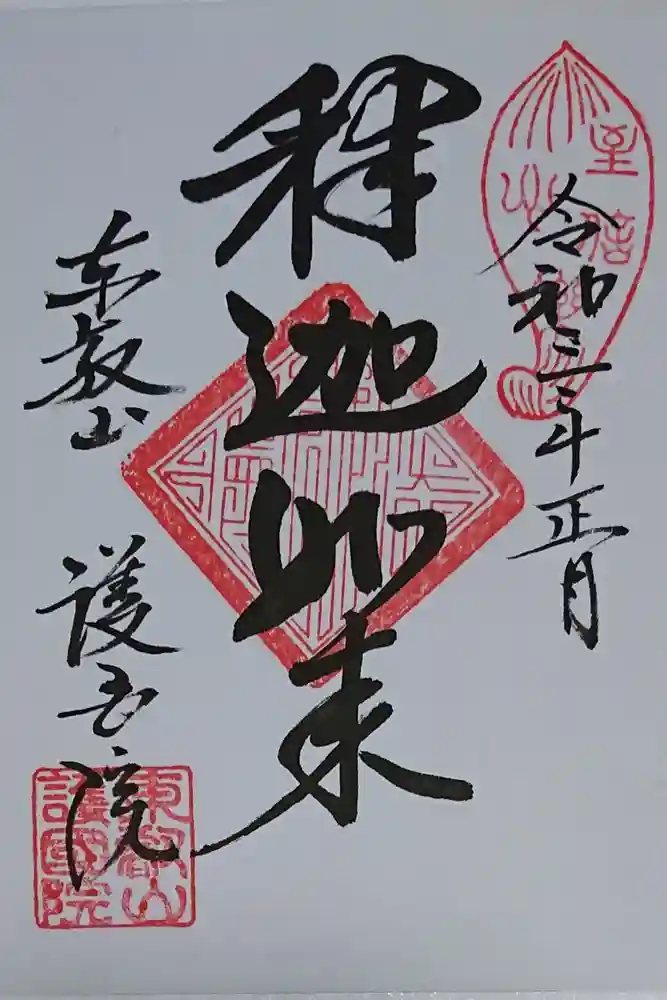 令和三年正月
釈迦如来
東叡山
護国院
東叡山
護國院